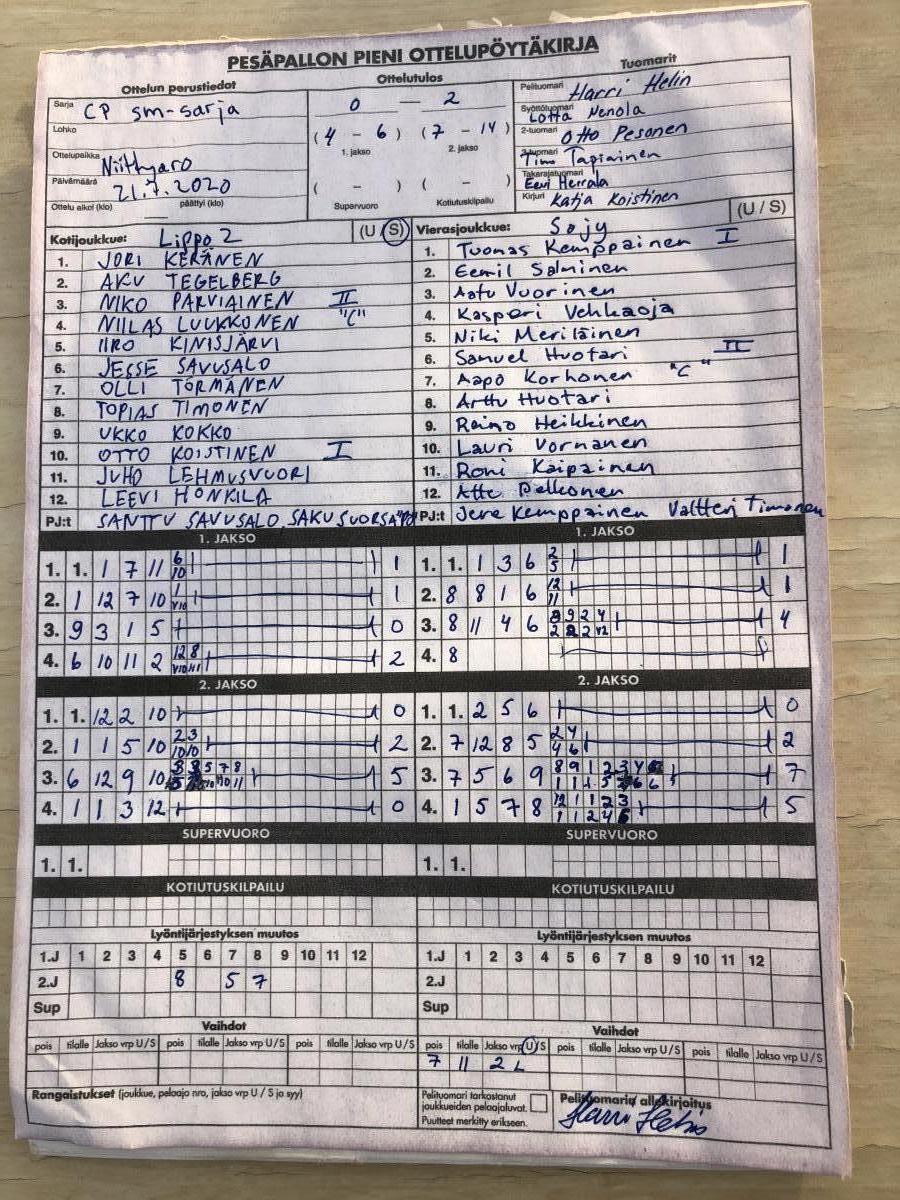 PESÄPALLON PIENI OTTELUPÖYTÄKIRJA
Ottelun perustiedot
Ottelutulos
Tuomarit
Sarja CP sm-sarja
Lohko
Ottelupaikka Niittyaro
Päivämäärä 21.7.2020
Ottelu alkoi (klo) päättyi (klo)
0 — 2
(4 - 6) (7 - 14)
1. jakso 2. jakso
( - ) ( - )
Supervuoro Kotiutuskilpailu
Pelituomari Harri Helin
Syöttötuomari Lotta Nenola
2-tuomari Otto Pesonen
3-tuomari Timo Tapiainen
Takarajatuomari Eevi Herrala
Kirjuri Katja Koistinen
Kotijoukkue: Lippo 2 (U / S)
1. JORI KERÄNEN
2. AKU TEGELBERG
3. NIKO PARVIAINEN II
4. NIILAS LUUKKONEN "C"
5. IIRO KINISJÄRVI
6. JESSE SAVUSALO
7. OLLI TÖRMÄNEN
8. TOPIAS TIMONEN
9. UKKO KOKKO
10. OTTO KOISTINEN I
11. JUHO LEHMUSVUORI
12. LEEVI HONKILA
PJ:t SANTTU SAVUSALO, SAKU SUORSA
Vierasjoukkue: Sojy (U / S)
1. Tuomas Kemppainen I
2. Eemil Salminen
3. Aatu Vuorinen
4. Kasperi Vehkaoja
5. Niki Meriläinen
6. Samuel Huotari II
7. Aapo Korhonen "C"
8. Arttu Huotari
9. Raino Heikkinen
10. Lauri Vornanen
11. Roni Kaipainen
12. Atte Pelkonen
PJ:t Jere Kemppainen Valtteri Timonen
1. JAKSO
1. 1. 1 7 11 6 10 1
2. 1 12 7 10 1 V10 1
3. 9 3 1 5 0
4. 6 10 11 2 12 8 2
1. JAKSO
1. 1. 1 3 6 2 5 1
2. 8 8 1 6 12 11 1
3. 8 11 4 6 8 9 2 4 4
4. 8
2. JAKSO
1. 1. 12 2 10 0
2. 1 1 5 10 2 3 10 10 2
3. 6 12 9 10 8 8 5 7 8 5
4. 1 1 3 12 0
2. JAKSO
1. 1. 2 5 6 0
2. 7 12 8 5 2 4 4 6 2
3. 7 5 6 9 8 9 1 2 3 4 7
4. 1 5 7 8 12 1 1 2 3 5
SUPERVUORO
1. 1.
SUPERVUORO
1. 1.
KOTIUTUSKILPAILU
KOTIUTUSKILPAILU
Lyöntijärjestyksen muutos
1.J 1 2 3 4 5 6 7 8 9 10 11 12
2.J 8 5 7
Sup
Lyöntijärjestyksen muutos
1.J 1 2 3 4 5 6 7 8 9 10 11 12
2.J
Sup
Vaihdot
pois tilalle Jakso vrp U / S pois tilalle Jakso vrp U / S pois tilalle Jakso vrp U / S
Vaihdot
pois tilalle Jakso vrp U / S pois tilalle Jakso vrp U / S pois tilalle Jakso vrp U / S
7 11 2 L
Rangaistukset (joukkue, pelaaja nro, jakso vrp U / S ja syy)
Pelituomari tarkastanut
joukkueiden pelaajaluvat.
Puutteet merkitty erikseen.
Pelituomarin allekirjoitus
Harri Helin